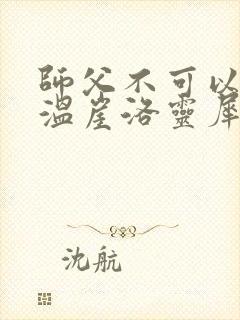 師父不可以
溫崖洛靈犀
沈航